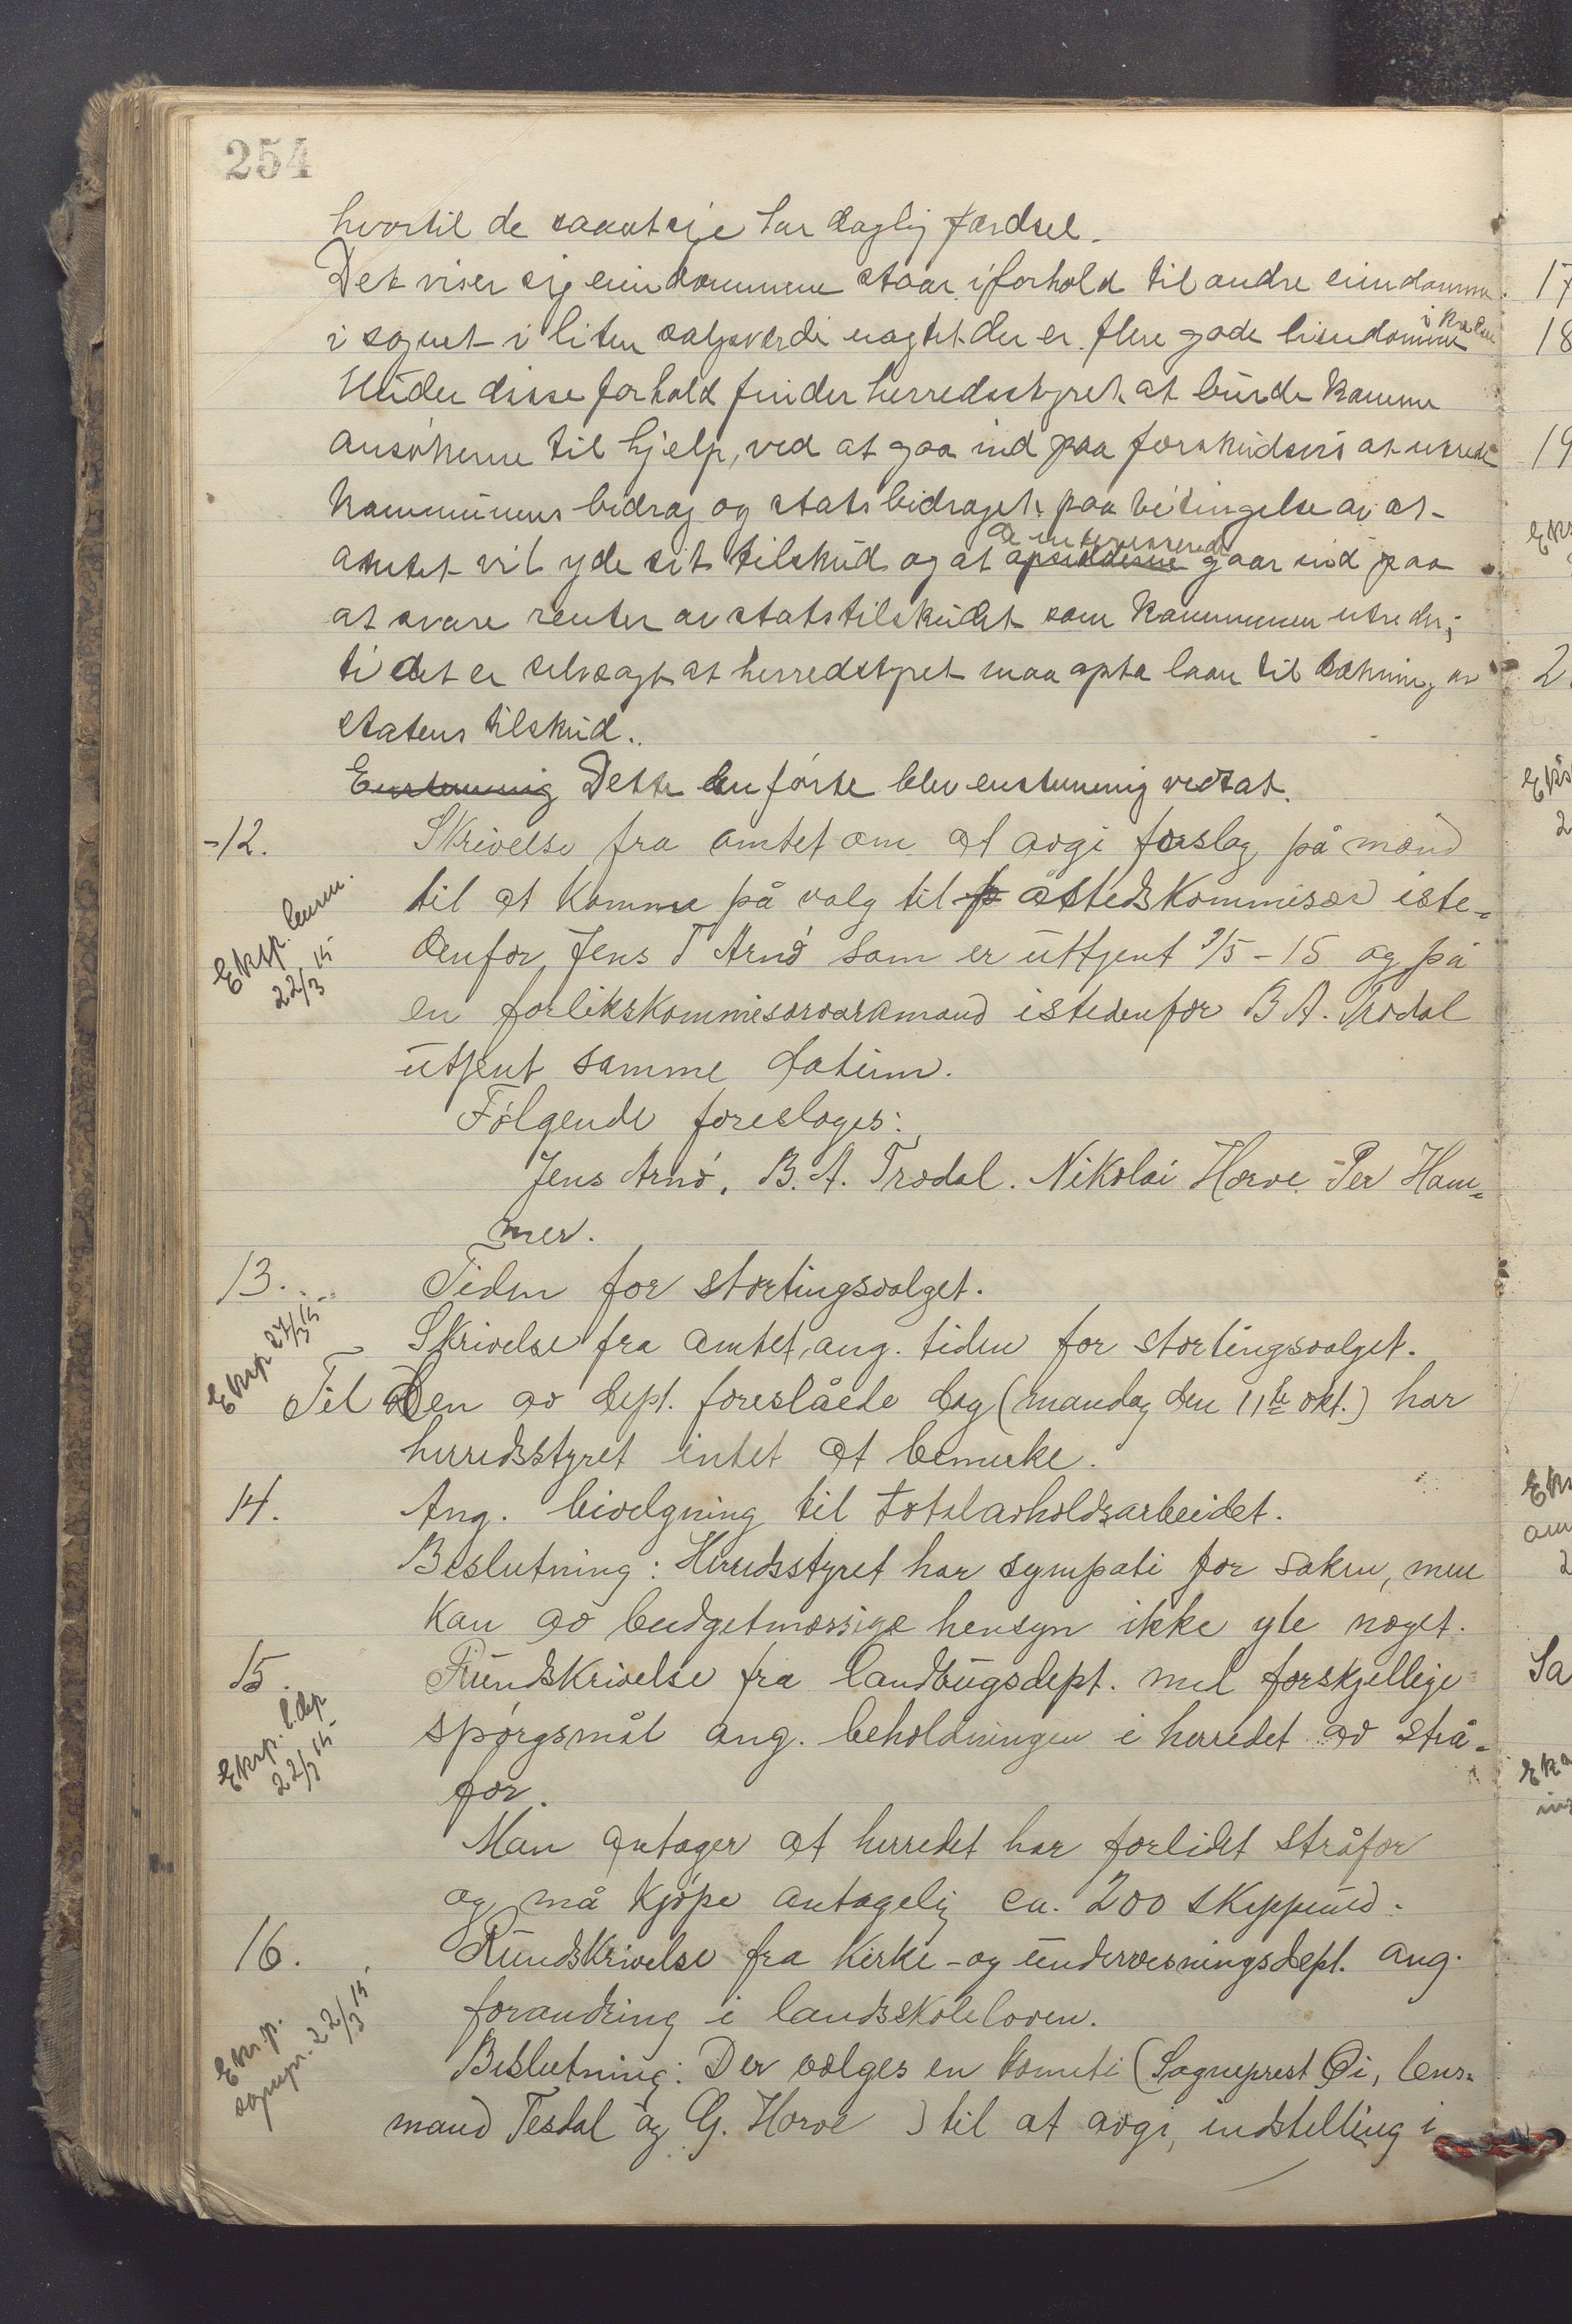 254
hvortil de saaatsige har daglig færdsel.
Det viser sig eiendommene staar i forhold til andre eiendomme
i sognet i liten salgsværdi uagtet der er flere gode eiendomme
Under disse forhold finder herredsstyret at burde komme
ansökerne til hjelp, ved at gaa ind paa forskudsvis at utrede
kommunens bidrag og statsbidraget paa betingelse av at
de interesserede
amtet vil yde sit tilskud og at opsidderne gaar ind paa
at svare renter av statstilskudet som kommunen utreder;
ti det er selvsagt at herredstyret maa opta laan til dækning av
statens tilskud.
Enstemmig Dette anførte blev enstemmig vedtat.
-12. Skrivelse fra amtet om at avgi forslag på mænd
til at komme på valg til p åstedskommisær iste-
Eksp. lensm.
22/3 15
denfor Jens T Arnö som er uttjent 9/5-15 og på
en forlikskommisærvaramand istedenfor B A. Trodal
utjent samme datum.
Fölgende foresloges:
Jens Arnö, B. A. Trodal. Nikolai Horve Per Ham-
mer.
13. Tiden for stortingsvalget.
Eksp 27/3 15
Skrivelse fra amtet, ang. tiden for stortingsvalget.
Til den av dept. foreslåede dag (mandag den 11te okt.) har
herredsstyret intet at bemerke.
14. Ang. bivelgning til totalavholdsarbeidet.
Beslutning: Herredsstyret har sympati for saken, men
kan av budgetmæssige hensyn ikke yte noget.
15. Rundskrivelse fra landbugsdept. med forskjellige
Eksp. l.dep
22/3 15
spörgsmål ang. beholdningen i herredet av strå-
for.
Man antager at herredet har forlidet stråfor
og må kjöpe antagelig ca. 200 skippund.
16. Rundskrivelse fra Kirke- og undervisningsdept. ang.
forandring i landsskoleloven.
Eks.p.
sognepr. 22/3 15
Beslutning: Der vælges en komite (Sogneprest Øi, lens-
mand Tesdal og G. Horve ) til at avgi indstelling i
17
18
19
2